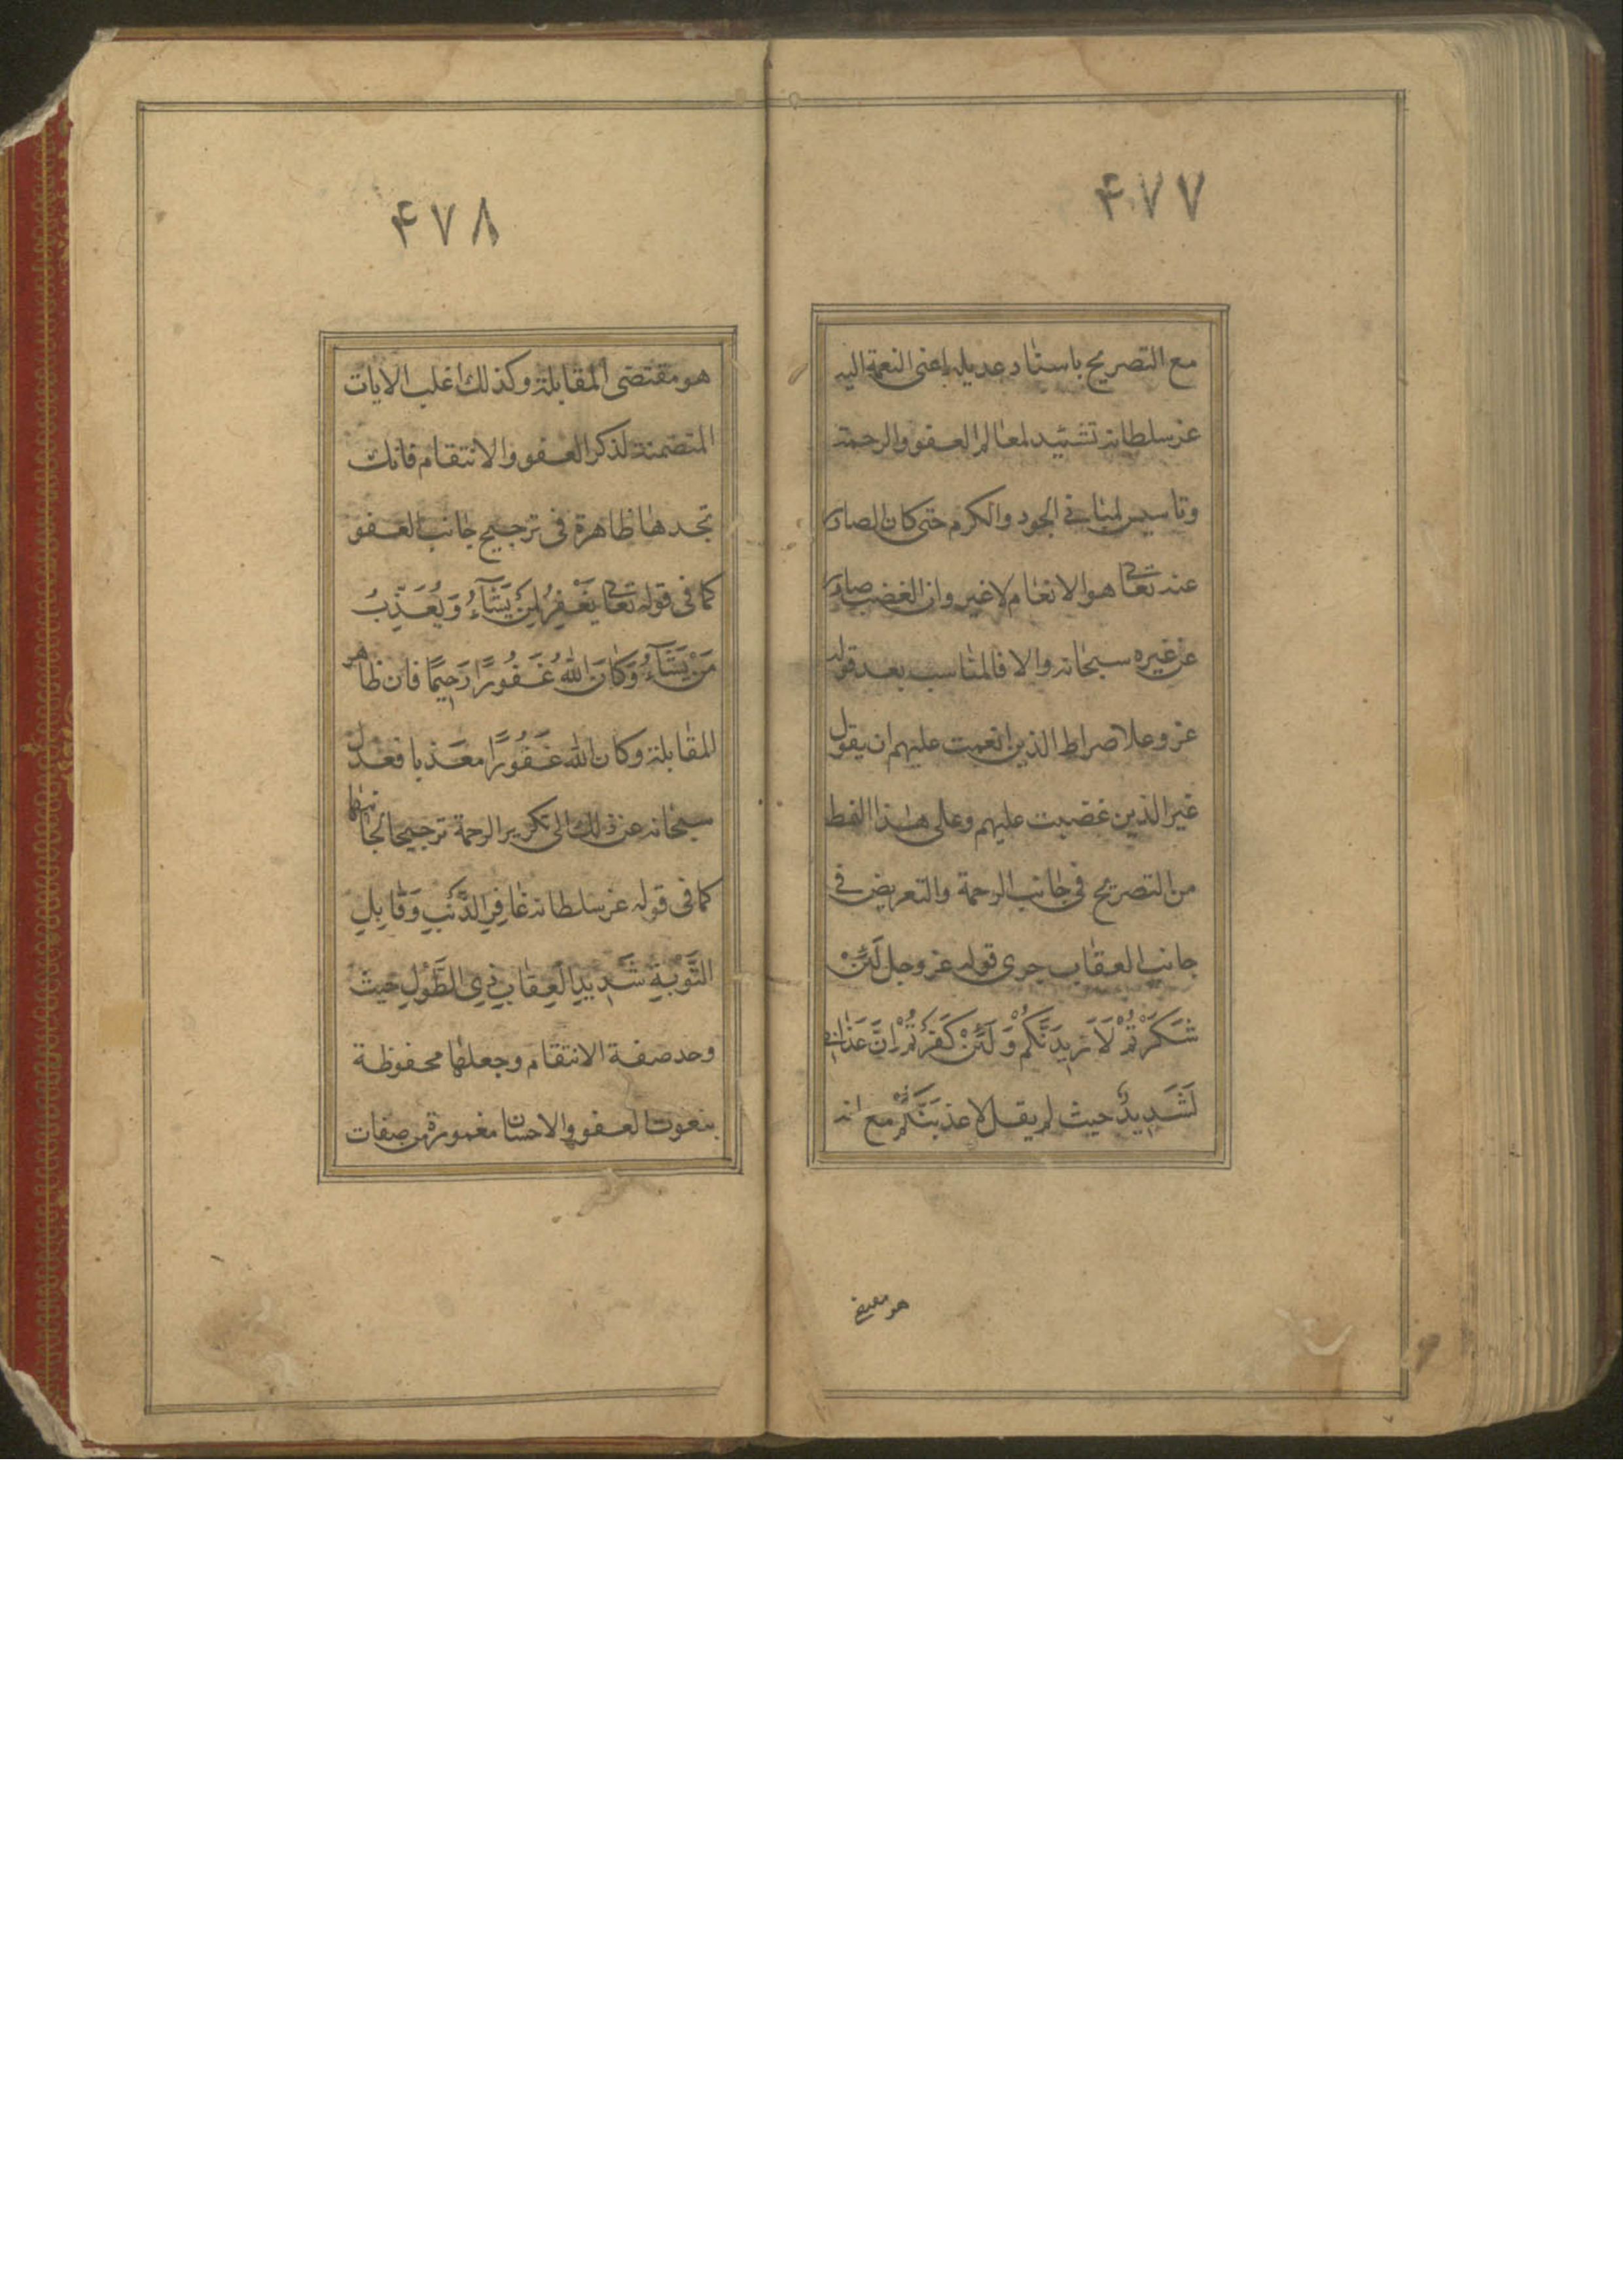 ۴۷۷
مع التصريح باسناد عديله اعنى النعمة اليه
عز سلطانه تشييد لمعالم العفو والرحمة
وتاسيس لمبانى الجود والكرم حتى كان الصادر
عنه تعالى هو الانعام لا غير وان الغضب صادر
عن غيره سبحانه والا فالمناسب بعد قوله
عز وعلا صراط الذين انعمت عليهم ان يقول
غير الذين غضبت عليهم وعلى هذا النمط
من التصريح فى جانب الرحمة والتعريض فى
جانب العقاب جرى قوله عز وجل لَئِنْ
شَكَرْتُمْ لَاَزيدَنَّكُمْ وَلَئِنْ كَفَرْتُمْ اِنَّ عَذابى
لَشَديدٌ حيث لم يقل لاعذبَنَّكُمْ مع انه
هو
۴۷۸
هو مقتضى المقابلة وكذلك اغلب الايات
المتضمنة لذكر العفو والانتقام فانك
تجدها ظاهرة فى ترجيح جانب العفو
كما فى قوله تعالى يَغْفِرُ لِمَنْ يَشَآءُ وَيُعَذِّبُ
مَنْ يَشَآءُ وَكَانَ اللهُ غَفُورًا رَحيمًا فان ظاهر
المقابلة وكان الله غَفُورًا معذبا فعدل
سبحانه عن ذلك الى تكرير الرحمة ترجيحا لجانبها
كما فى قوله عز سلطانه غافِرِ الذَّنْبِ وَقابِلِ
التَّوْبَةِ شَديدِ الْعِقابِ ذِى الطَّوْلِ حيث
وحد صفة الانتقام وجعلها محفوظة
بنعوت العفو والاحسان مغمورة من صفات